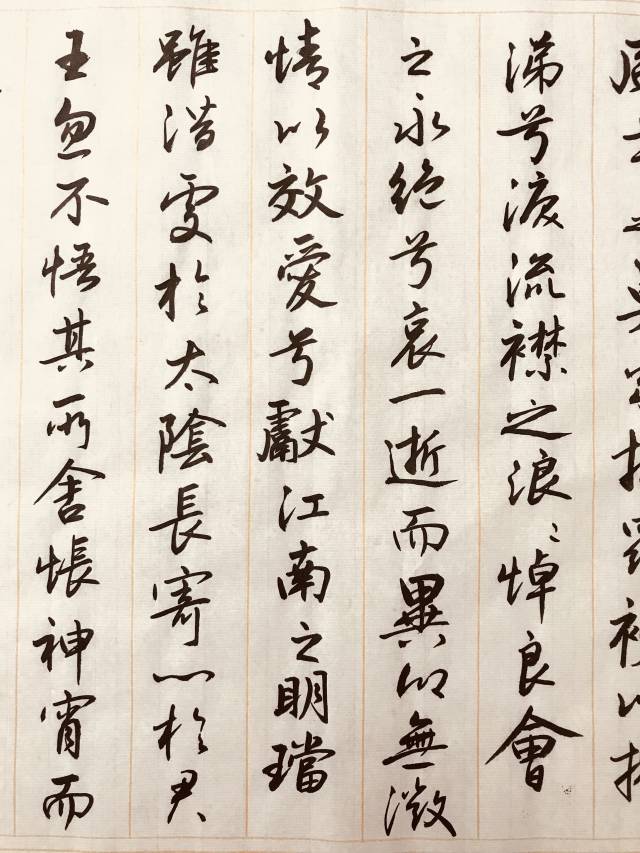 抗羅袂以掩
涕兮淚流襟之浪〻悼良會
之永絕兮哀一逝而異鄉無微
情以效愛兮獻江南之明璫
雖潛處於太陰長寄心於君
王忽不悟其所舍悵神宵而